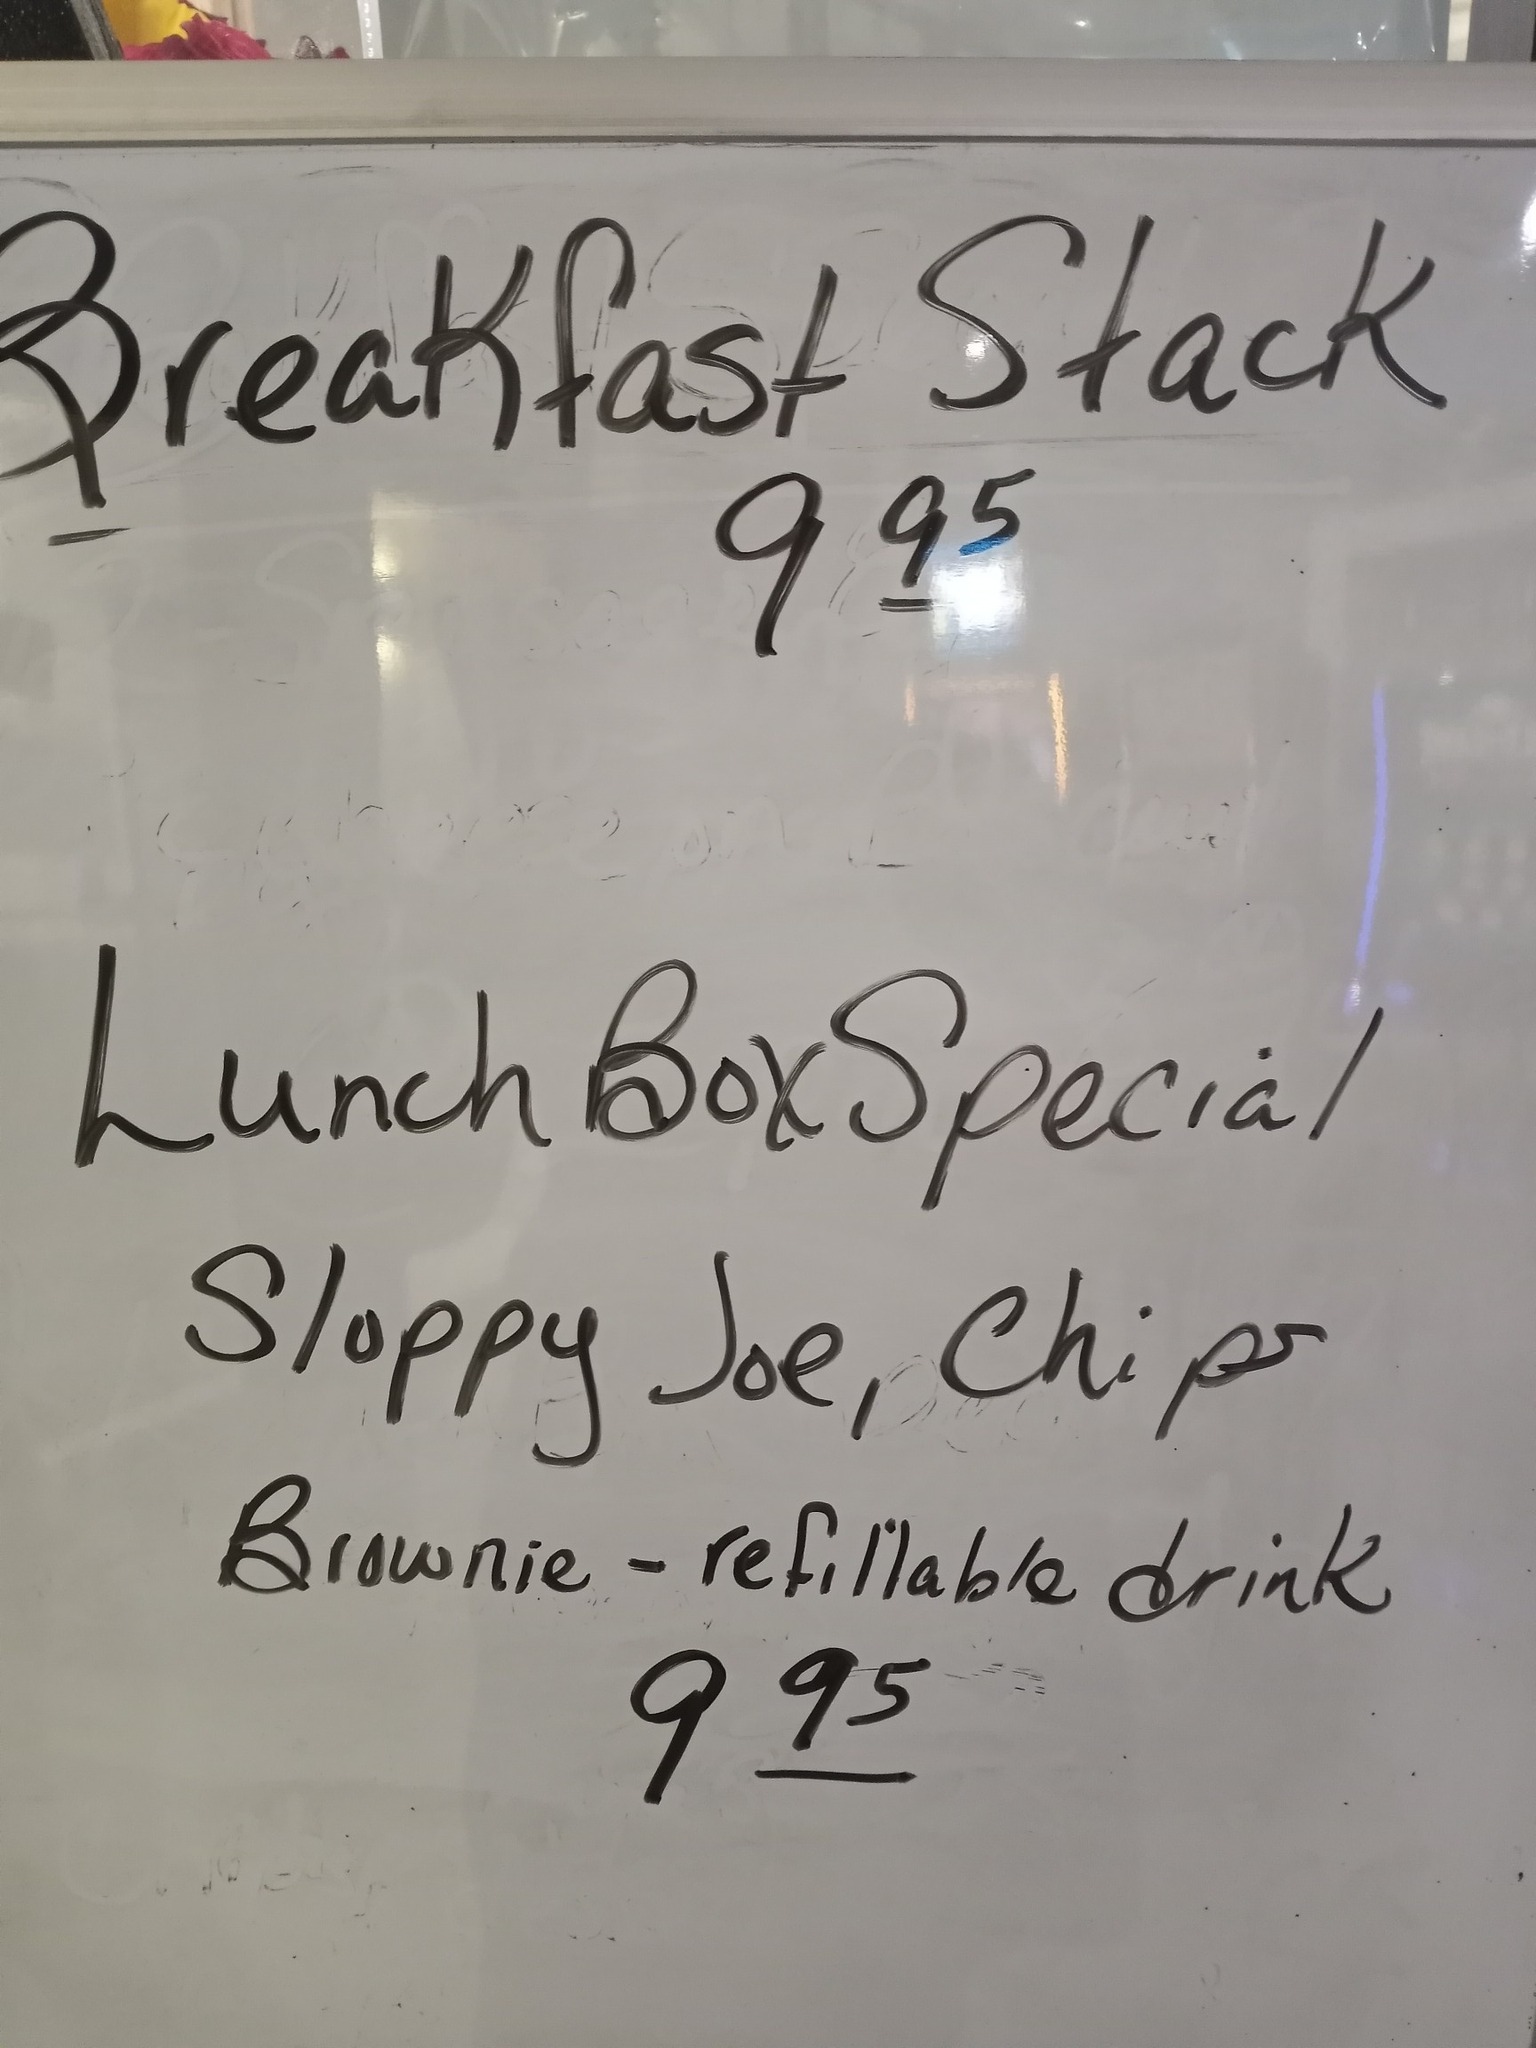 Breakfast Stack
9 95
Lunch Box Special
Sloppy Joe, Chips
Brownie - refillable drink
9 95